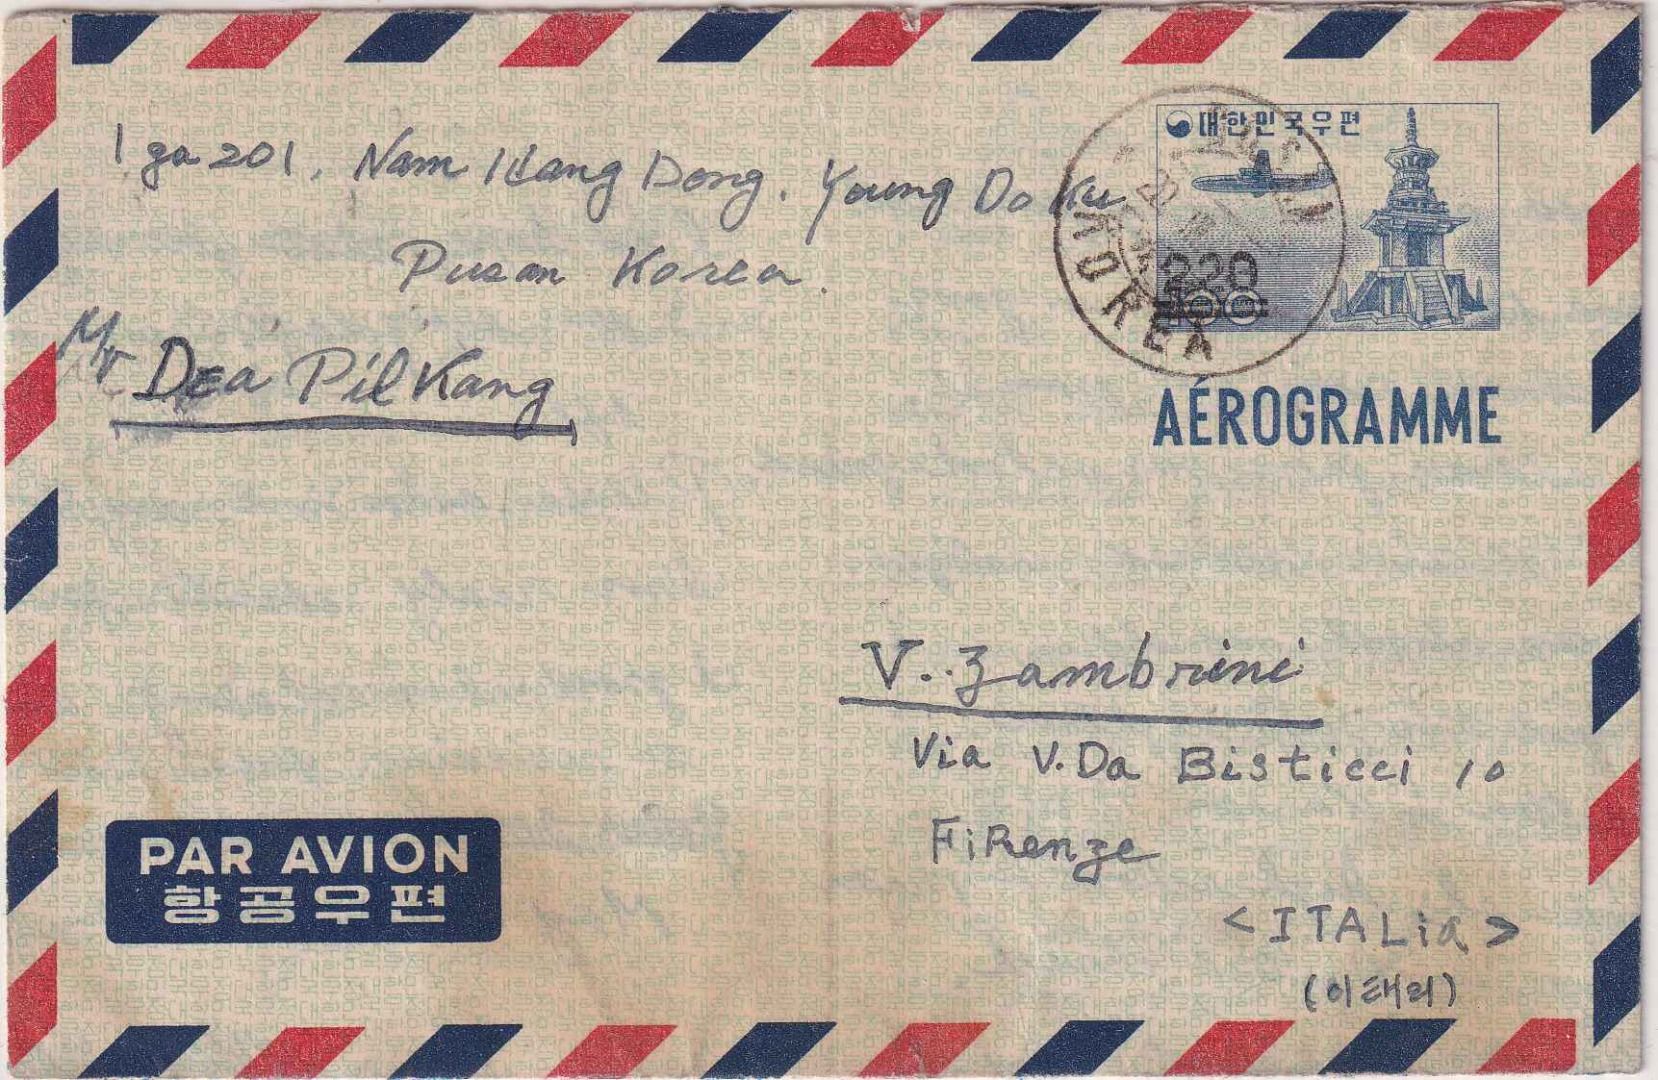 1 ga 201, Nam Hang Dong. Young Do Ku
Pusan Korea.
Mr Dea Pil Kang
대한민국우편
220
100
KOREA
AÉROGRAMME
V. Zambrini
Via V. Da Bisticci 10
FiRenze
<ITALia>
(이태리)
PAR AVION
항공우편